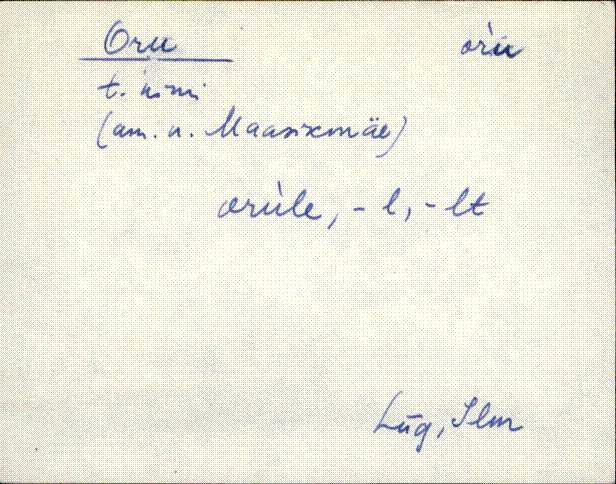 Oru orù
t. nimi
(am. n. Maasikmäe)
orùle, - l, - lt
Lüg, Ilm